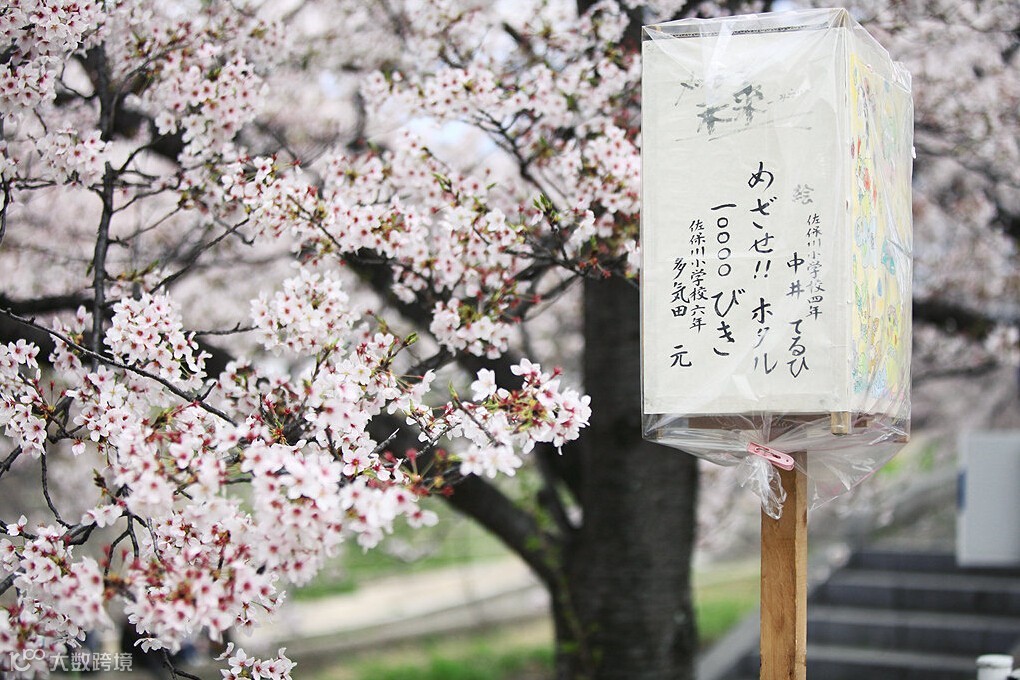 絵
佐保川小学校四年
中井 てるひ
めざせ!! ホタル
一〇〇〇〇びき
佐保川小学校六年
多気田 元
大数跨境